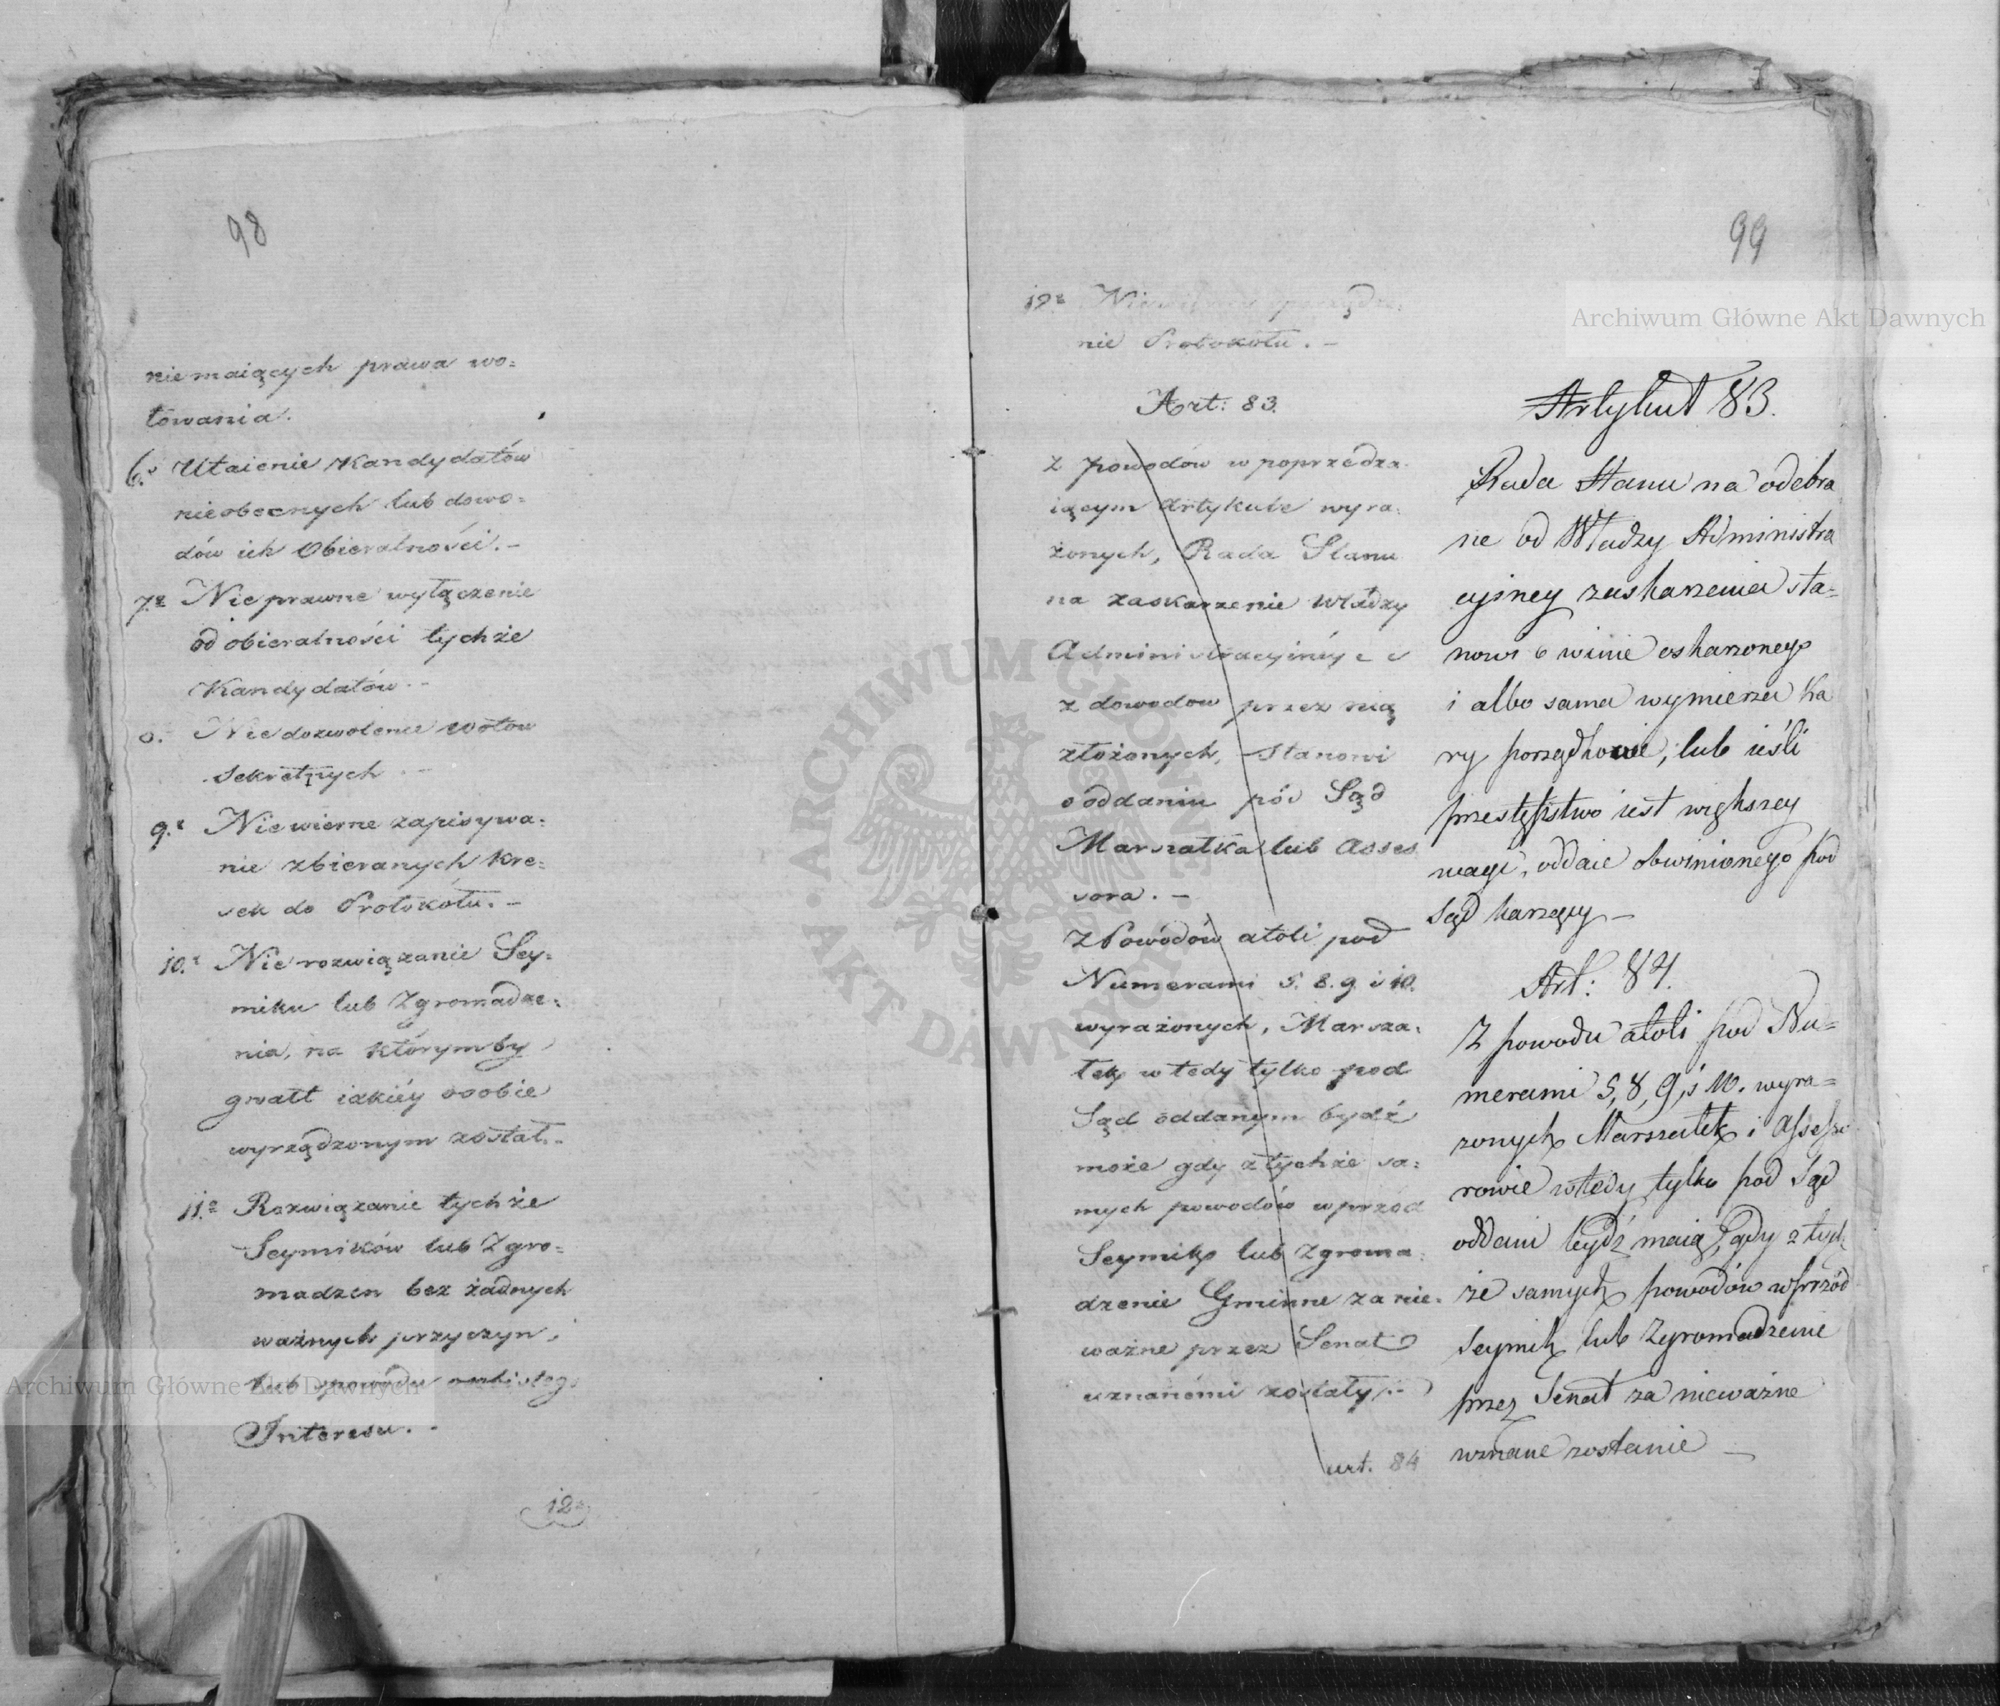 98
niemaiących prawa wo=
towania.
6.° Utaienie Kandydatów
nieobecnych lub dowo=
dów ich Obieralności. –
7.° Nieprawne wyłączenie
od obieralności tychże
Kandydatów. –
8. Niedozwolenie wotow
sekretnych. –
9.° Niewierne zapisywa=
nie zbieranych kre=
sek do Protokółu. –
10.° Nierozwiązanie Sey=
miku lub Zgromadze=
nia, na którymby
gwałt iakiéy osobie
wyrządzonym został. –
11.° Rozwiązanie tychże
Seymików lub Zgro=
madzen bez żadnych
ważnych przyczyn,
lub z powodu
Interesu. –
12°
99
12° porządze=
nie Protokółu. –
Art: 83.
z powodów w poprzedza=
iącym Artykule wyra=
żonych, Rada Stanu
na zaskarzenie Władzy
Administracyinéy
z dowodow przez nią
złożonych, stanowi
o oddaniu pód Sąd
Marszałka lub Asses
sora. –
Z Powodów atoli pod
Numerami 5. 8. 9. i 10.
wyrażonych, Marsza=
łek wtedy tylko pod
Sąd oddanym bydź
może gdy z tychże sa=
mych powodów wprzód
Seymik lub Zgroma=
dzenie Gminne za nie=
ważne przez Senat
uznanémi zostały. –
art. 84
Artykuł 83.
Rada Stanu na odebra
ne od Władzy Administra
cyiney zaskarzenia sta=
nowi o winie oskarzonego
i albo sama wymierza ka
ry porządkowe, lub ieśli
przestępstwo iest większey
wagi, oddaie obwinionego pod
Sąd karzący –
Art: 84.
Z powodu atoli pod Nu=
merami 5, 8, 9, i 10. wyra=
zonych Marszałek i Assesso
rowie wtedy tylko pod Sąd
oddani bydź maią, gdy z tych
że samych powodów wprzód
Seymik lub Zgromadzenie
przez Senat za nieważne
uznane zostanie –
Archiwum Główne Akt Dawnych
Archiwum Główne Akt Dawnych
ARCHIWUM GŁÓWNE AKT DAWNYCH